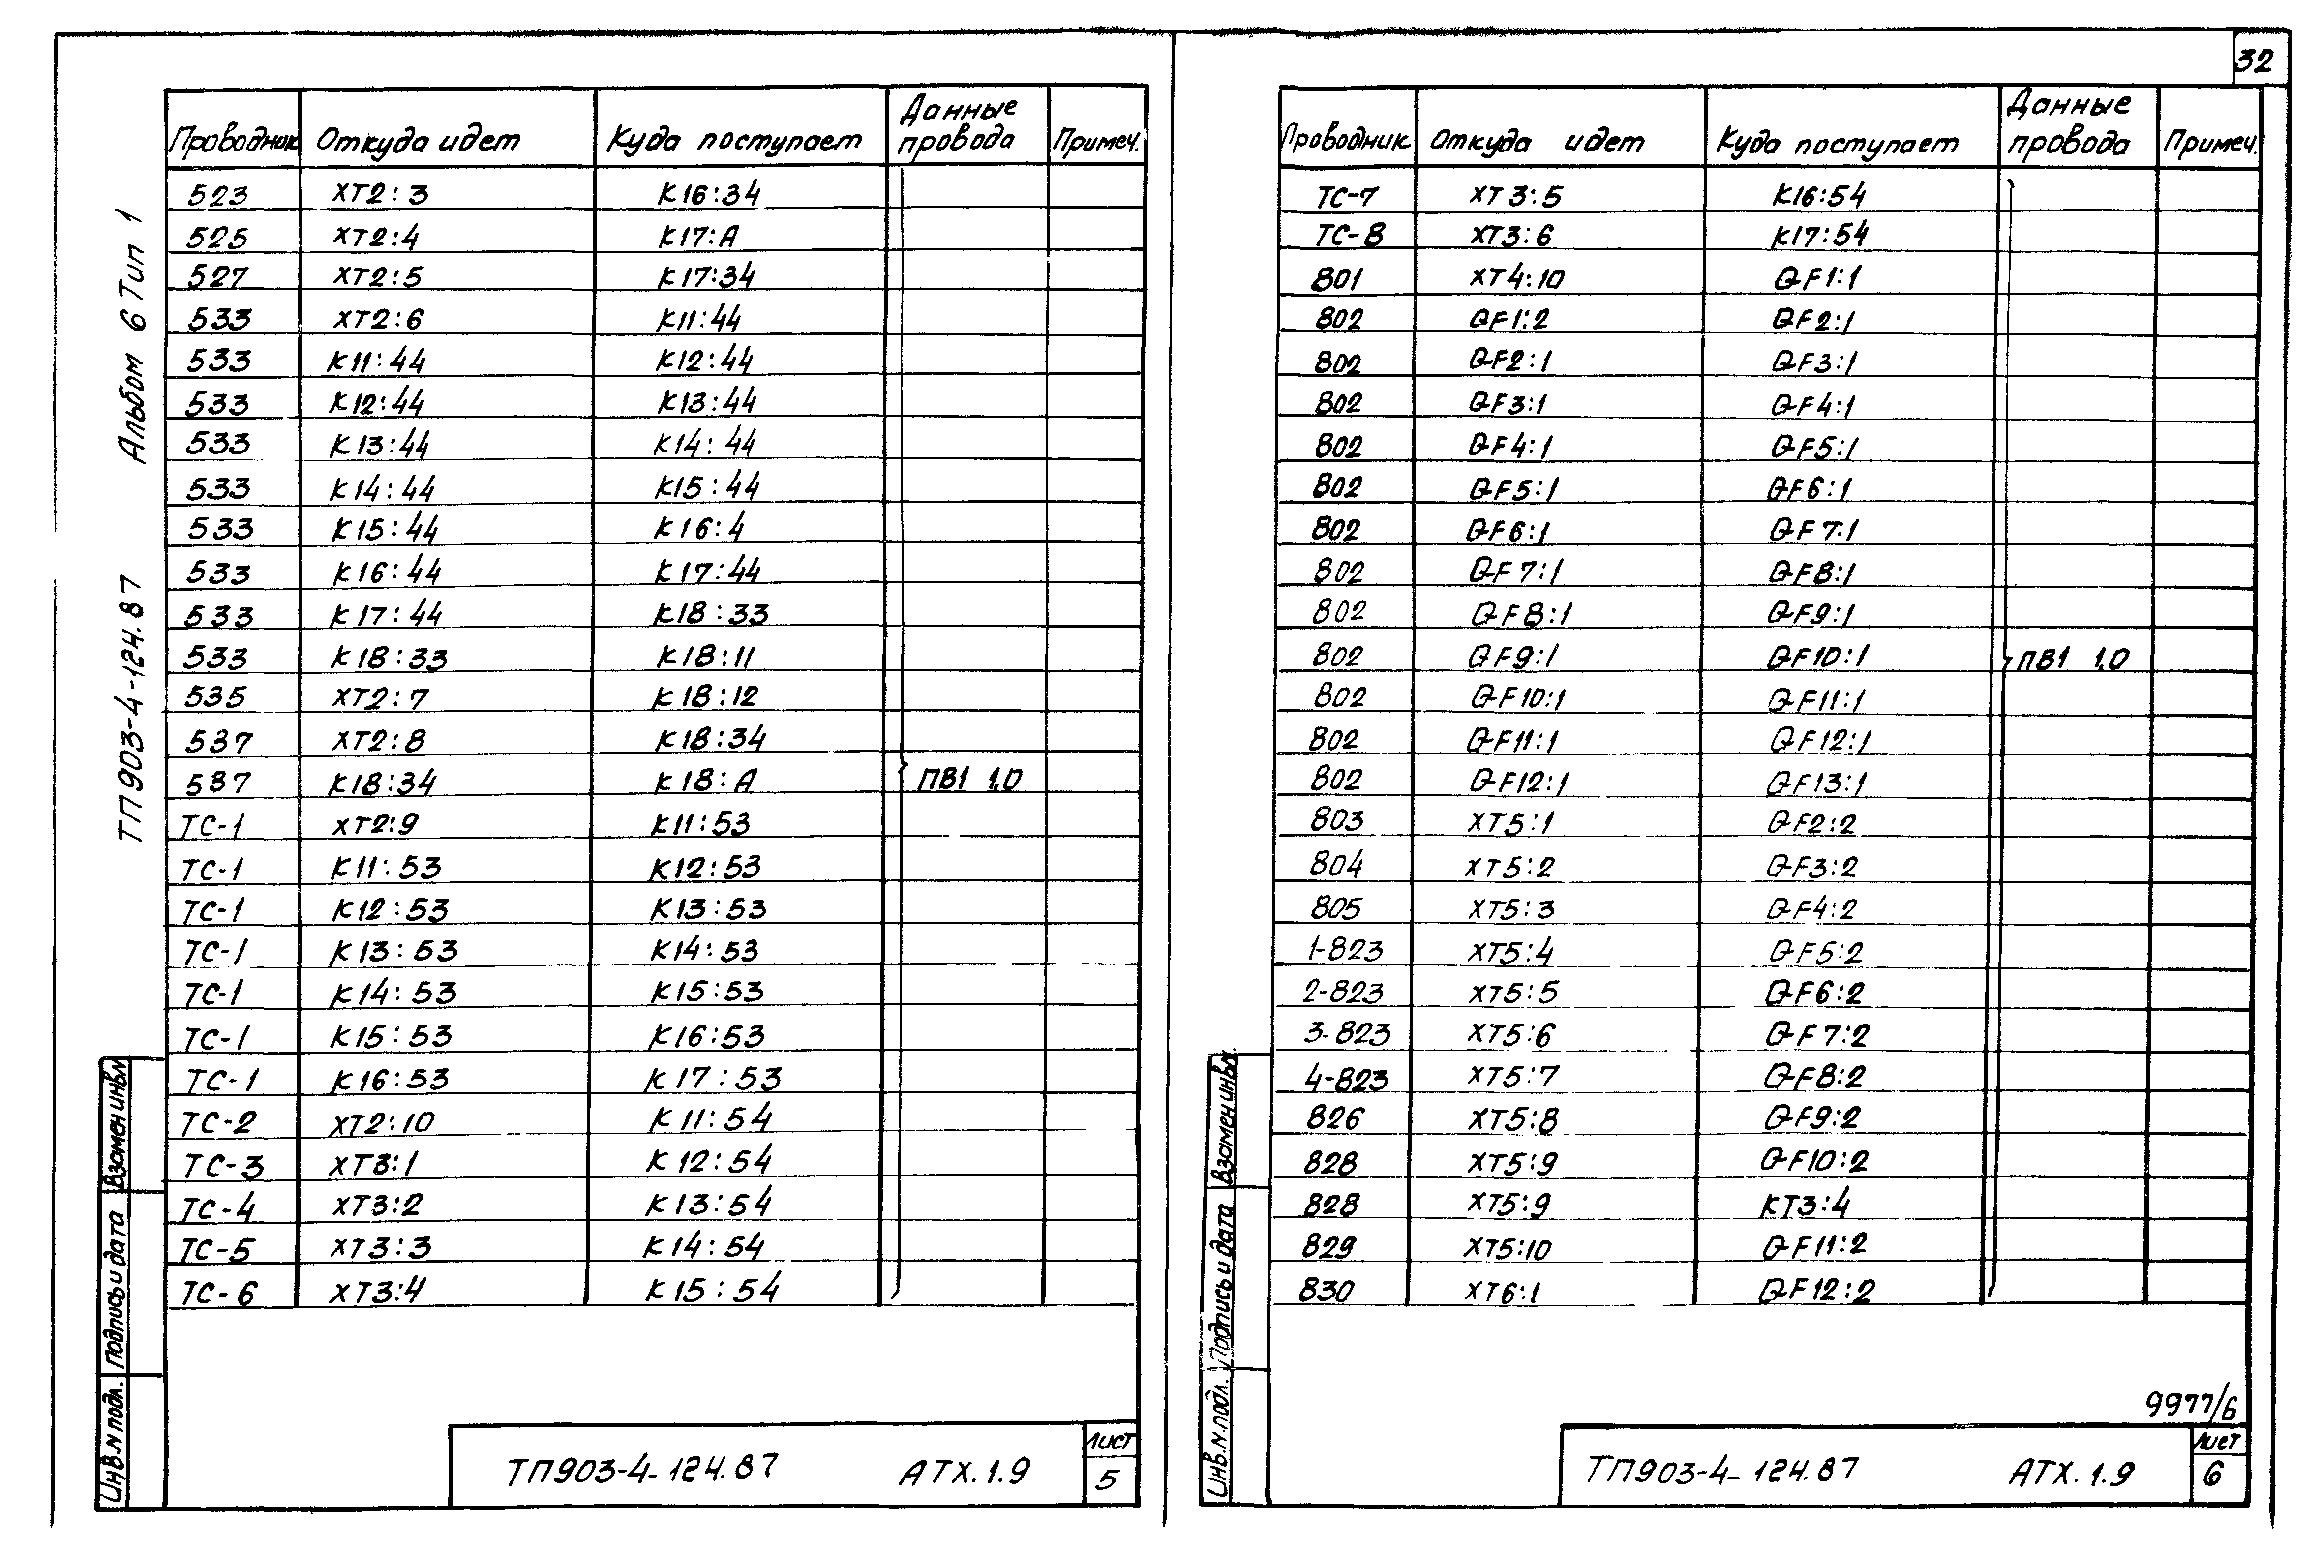 32
Альбом 6 Тип 1
ТП903-4-124.87
Проводник Откуда идет Куда поступает Данные провода Примеч.
523 XT2:3 K16:34
525 XT2:4 K17:A
527 XT2:5 K17:34
533 XT2:6 K11:44
533 K11:44 K12:44
533 K12:44 K13:44
533 K13:44 K14:44
533 K14:44 K15:44
533 K15:44 K16:4
533 K16:44 K17:44
533 K17:44 K18:33
533 K18:33 K18:11
535 XT2:7 K18:12
537 XT2:8 K18:34
537 K18:34 K18:A ПВ1 1,0
TC-1 XT2:9 K11:53
TC-1 K11:53 K12:53
TC-1 K12:53 K13:53
TC-1 K13:53 K14:53
TC-1 K14:53 K15:53
TC-1 K15:53 K16:53
TC-1 K16:53 K17:53
TC-2 XT2:10 K11:54
TC-3 XT3:1 K12:54
TC-4 XT3:2 K13:54
TC-5 XT3:3 K14:54
TC-6 XT3:4 K15:54
Инв.N подл. Подпись и дата Взамен инв.N
ТП903-4-124.87 АТХ.1.9 Лист 5
Проводник Откуда идет Куда поступает Данные провода Примеч.
TC-7 XT3:5 K16:54
TC-8 XT3:6 K17:54
801 XT4:10 QF1:1
802 QF1:2 QF2:1
802 QF2:1 QF3:1
802 QF3:1 QF4:1
802 QF4:1 QF5:1
802 QF5:1 QF6:1
802 QF6:1 QF7:1
802 QF7:1 QF8:1
802 QF8:1 QF9:1
802 QF9:1 QF10:1 ПВ1 1,0
802 QF10:1 QF11:1
802 QF11:1 QF12:1
802 QF12:1 QF13:1
803 XT5:1 QF2:2
804 XT5:2 QF3:2
805 XT5:3 QF4:2
1-823 XT5:4 QF5:2
2-823 XT5:5 QF6:2
3-823 XT5:6 QF7:2
4-823 XT5:7 QF8:2
826 XT5:8 QF9:2
828 XT5:9 QF10:2
828 XT5:9 KT3:4
829 XT5:10 QF11:2
830 XT6:1 QF12:2
Инв.N.подл. Подпись и дата Взамен инв.N.
9977/6
ТП903-4-124.87 АТХ.1.9 Лист 6